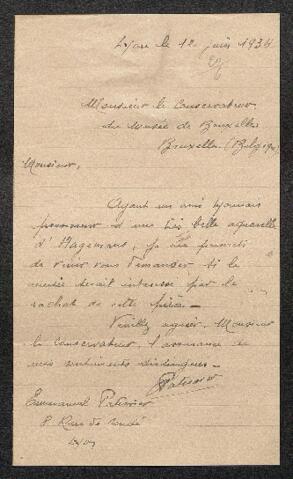 Lyon le 12 juin 1934
Monsieur le Conservateur
du Musée de Bruxelles
Bruxelles (Belgique)
Monsieur,
Ayant un ami lyonnais
possesseur d'une très belle aquarelle
d'Hagemans, je me permets
de venir vous demander si le
musée serait intéressé par le
rachat de cette pièce -
Veuillez agréer, Monsieur
le Conservateur, l'assurance de
mes sentiments distingués -
Emmanuel
8 Rue de Condé
Lyon